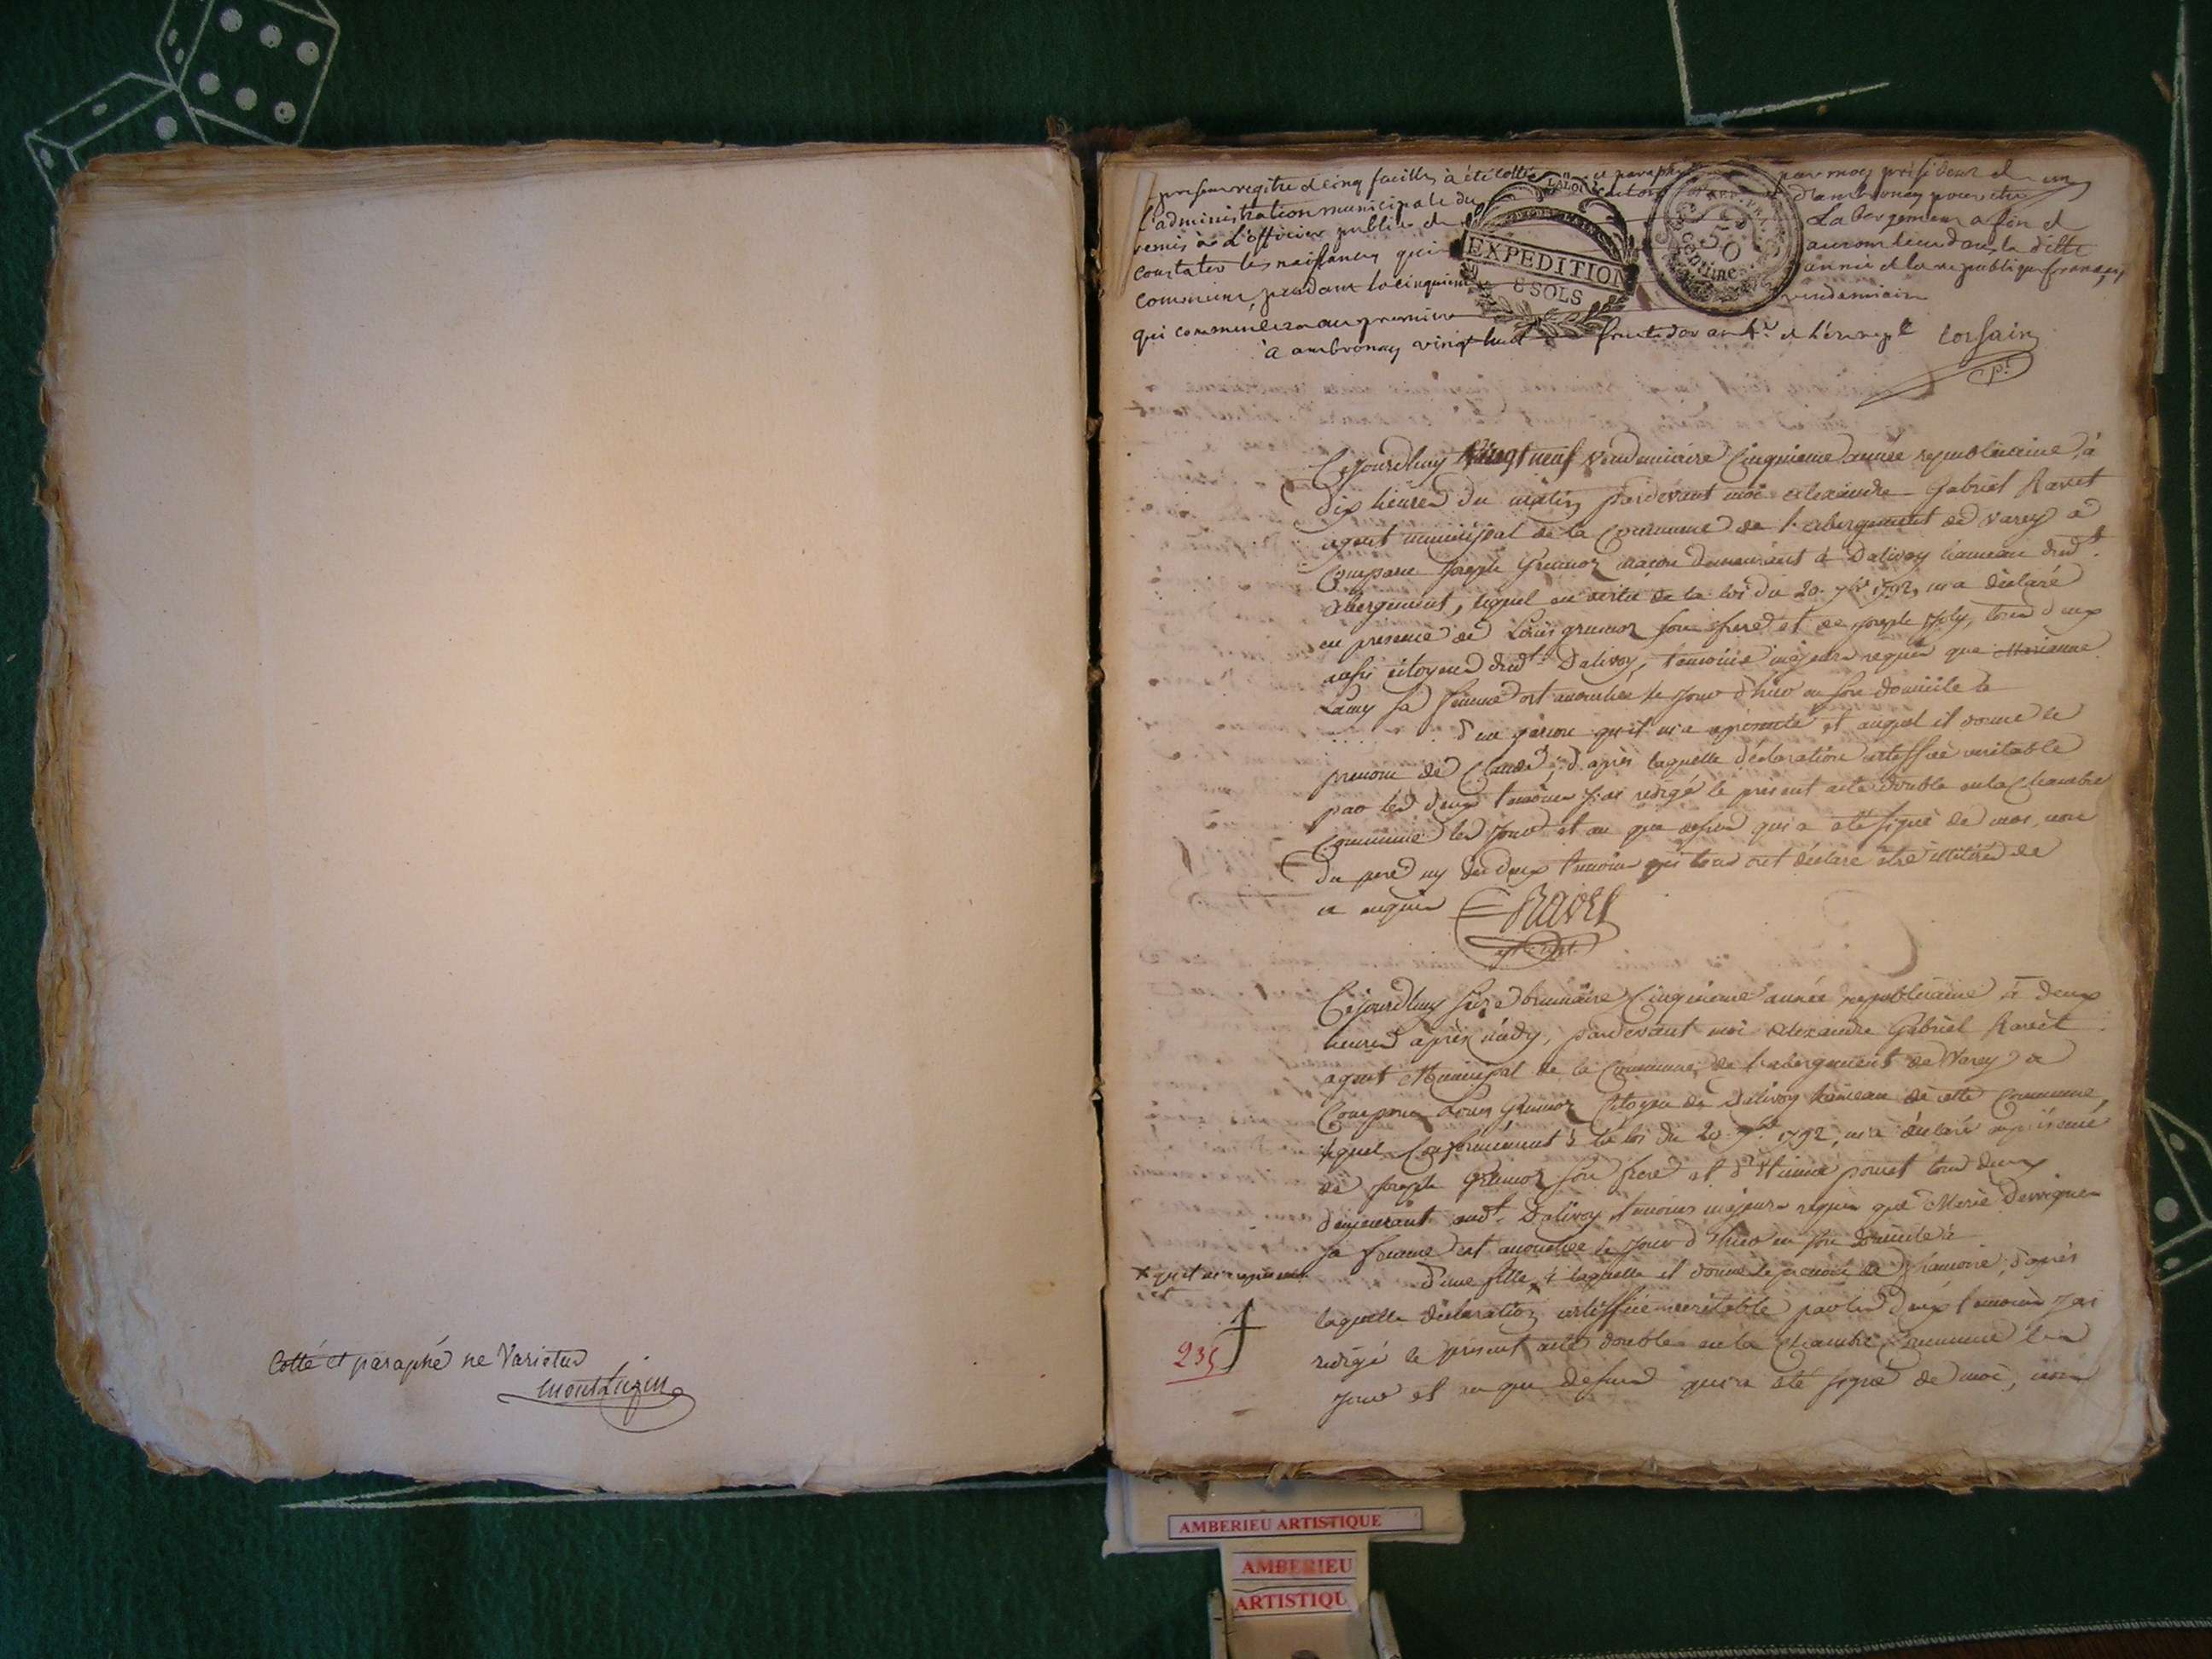 Cotté et paraphé ne Varietur
Montluzin
present registre de cinq feuilles à été cotté et paraphé par moy président de
l'administration municipale du canton d'ambronay pour être
remis à l'officier public de Labergement afin de
constater les naissances qui auront lieu dans la ditte
commune pendant la cinquieme année de la republique française
qui commencera au premier vendemiaire
à ambronay vingt huit fructidor an 4e de l'ére repe
pt
LA LOI
EXPEDITION
8 SOLS
REP. FRA.
50
centimes
Cejourdhuy Vingt neuf Vendemiaire Cinquieme année republicaine, à
dix heures du matin pardevant moi alexandre Gabriel Ravet
agent municipal de la Commune de l'abergement de varey a
Comparu Joseph Grumoz macon demeurant à Dalivoy hameau dudt
abergement, lequel en vertu de la loi du 20 7bre 1792, m'a déclaré
en presence de Louis grumoz son frere et de joseph Joly, tous deux
aussi citoyens dudt Dalivoy, temoins majeurs requis que Marianne
Lamy sa femme est accouchée le jour d'hier en son domicile à
d'un garcon qu'il m'a apresenté et auquel il donne le
prenom de Claude; d'après laquelle déclaration certiffiée veritable
par les deux temoins j'ai redigé le present acte double en la Chambre
Commune les jour et an que dessus qui a été signé de moi, non
du pere ny des deux temoins qui tous ont déclaré etre illitérés de
ce enquis
Ravet
agt. mpal.
Cejourdhuy seize brumaire Cinquieme année republicaine à deux
heures après midy, pardevant moi alexandre Gabriel Ravet
agent Municipal de la Commune de l'abergement de Varey a
Comparu Louis Grumoz Citoyen de Dalivoy hameau de cette Commune,
lequel Conformément à la loi du 20 7bre 1792, m'a déclaré en présence
de joseph Grumoz son frere et d'Etienne pouset tous deux
demeurant audt. Dalivoy temoins majeurs requis que Marie Derrignes
sa femme est accouchée le jour d'hier en son domicile à
x qu'il m'a representé
d'une fille x à laquelle il donne le prenom de françoise, d'après
laquelle déclaration certiffiée veritable par les deux temoins j'ai
redigé le présent acte double en la Chambre Commune les
jour et an que dessus qui a été signé de moi, non
235
AMBERIEU ARTISTIQUE
AMBERIEU
ARTISTIQU